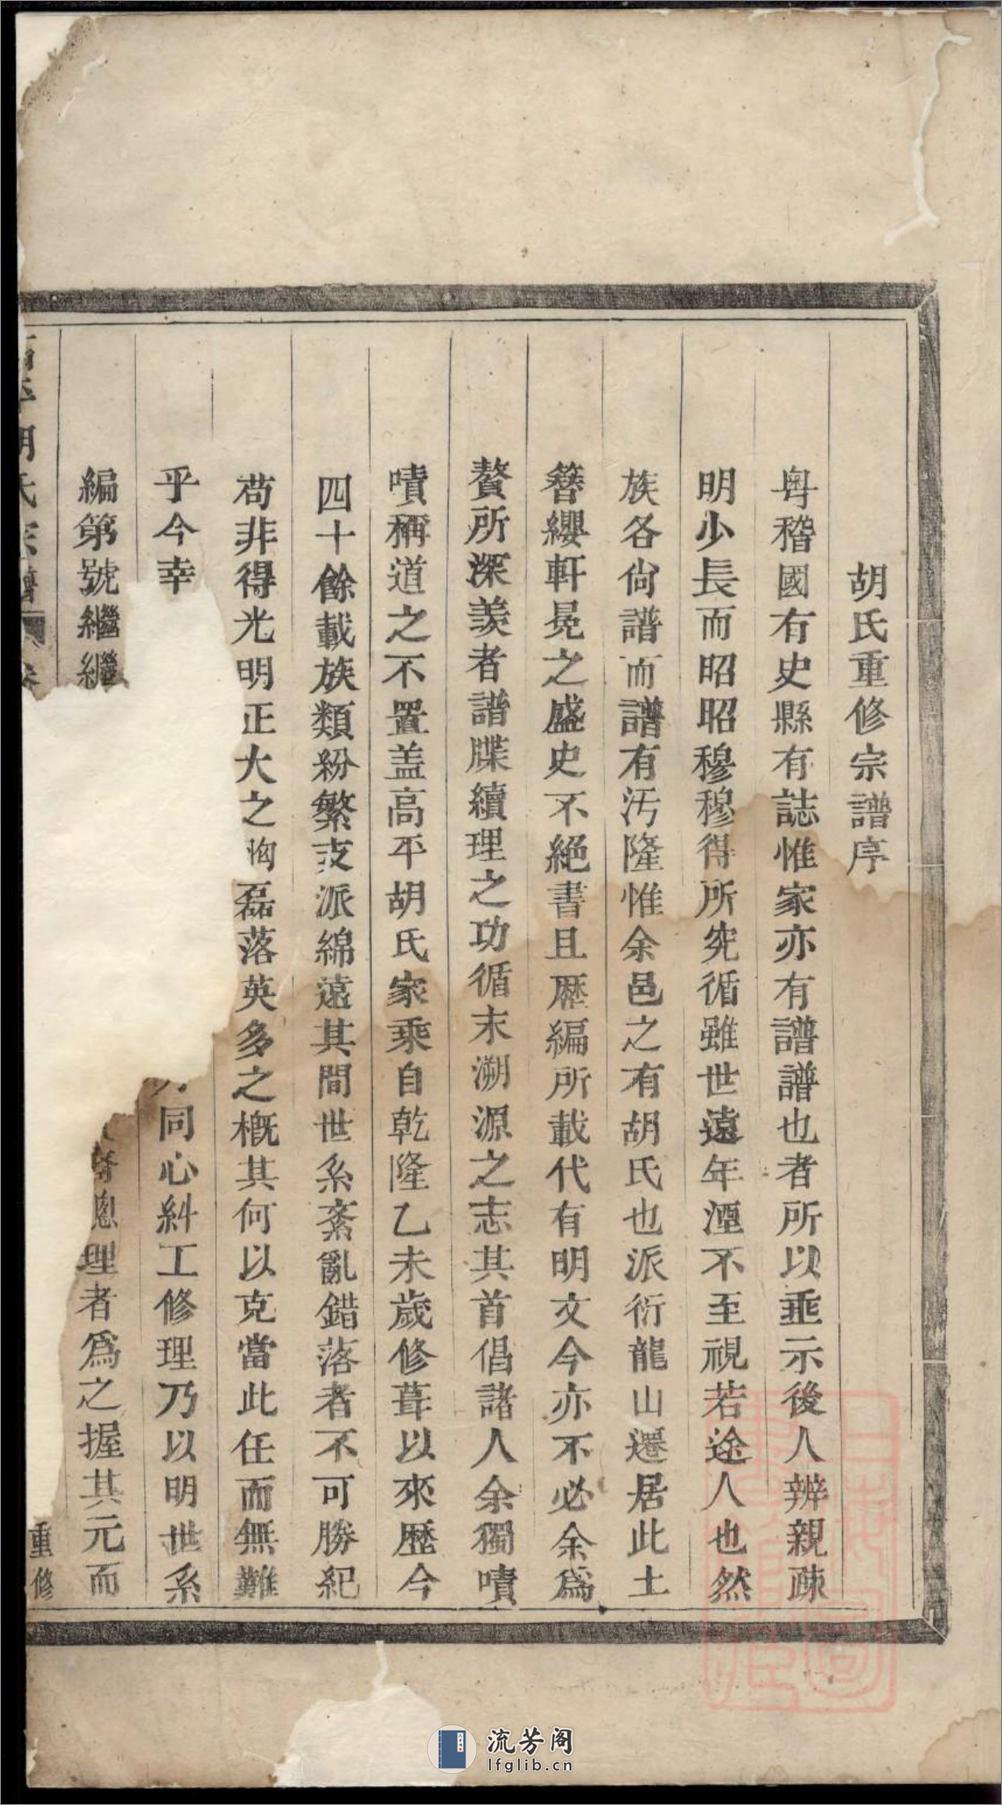 胡氏重修宗譜序
粤稽國有史縣有誌惟家亦有譜譜也者所以垂示後人辨親疎
明少長而昭昭穆穆得所究循雖世遠年湮不至視若途人也然
族各尙譜而譜有汚隆惟余邑之有胡氏也派衍龍山遷居此土
簪纓軒冕之盛史不絕書且歷編所載代有明文今亦不必余爲
贅所深羡者譜牒續理之功循末溯源之志其首倡諸人余獨嘖
嘖稱道之不置盖高平胡氏家乘自乾隆乙未歲修葺以來歷今
四十餘載族類紛繁支派綿遠其間世系紊亂錯落者不可勝紀
苟非得光明正大之胸磊落英多之概其何以克當此任而無難
乎今幸
同心糾工修理乃以明世系
編第號繼繼
理者爲之握其元而
胡氏宗譜
重修
流芳阁
lfglib.cn